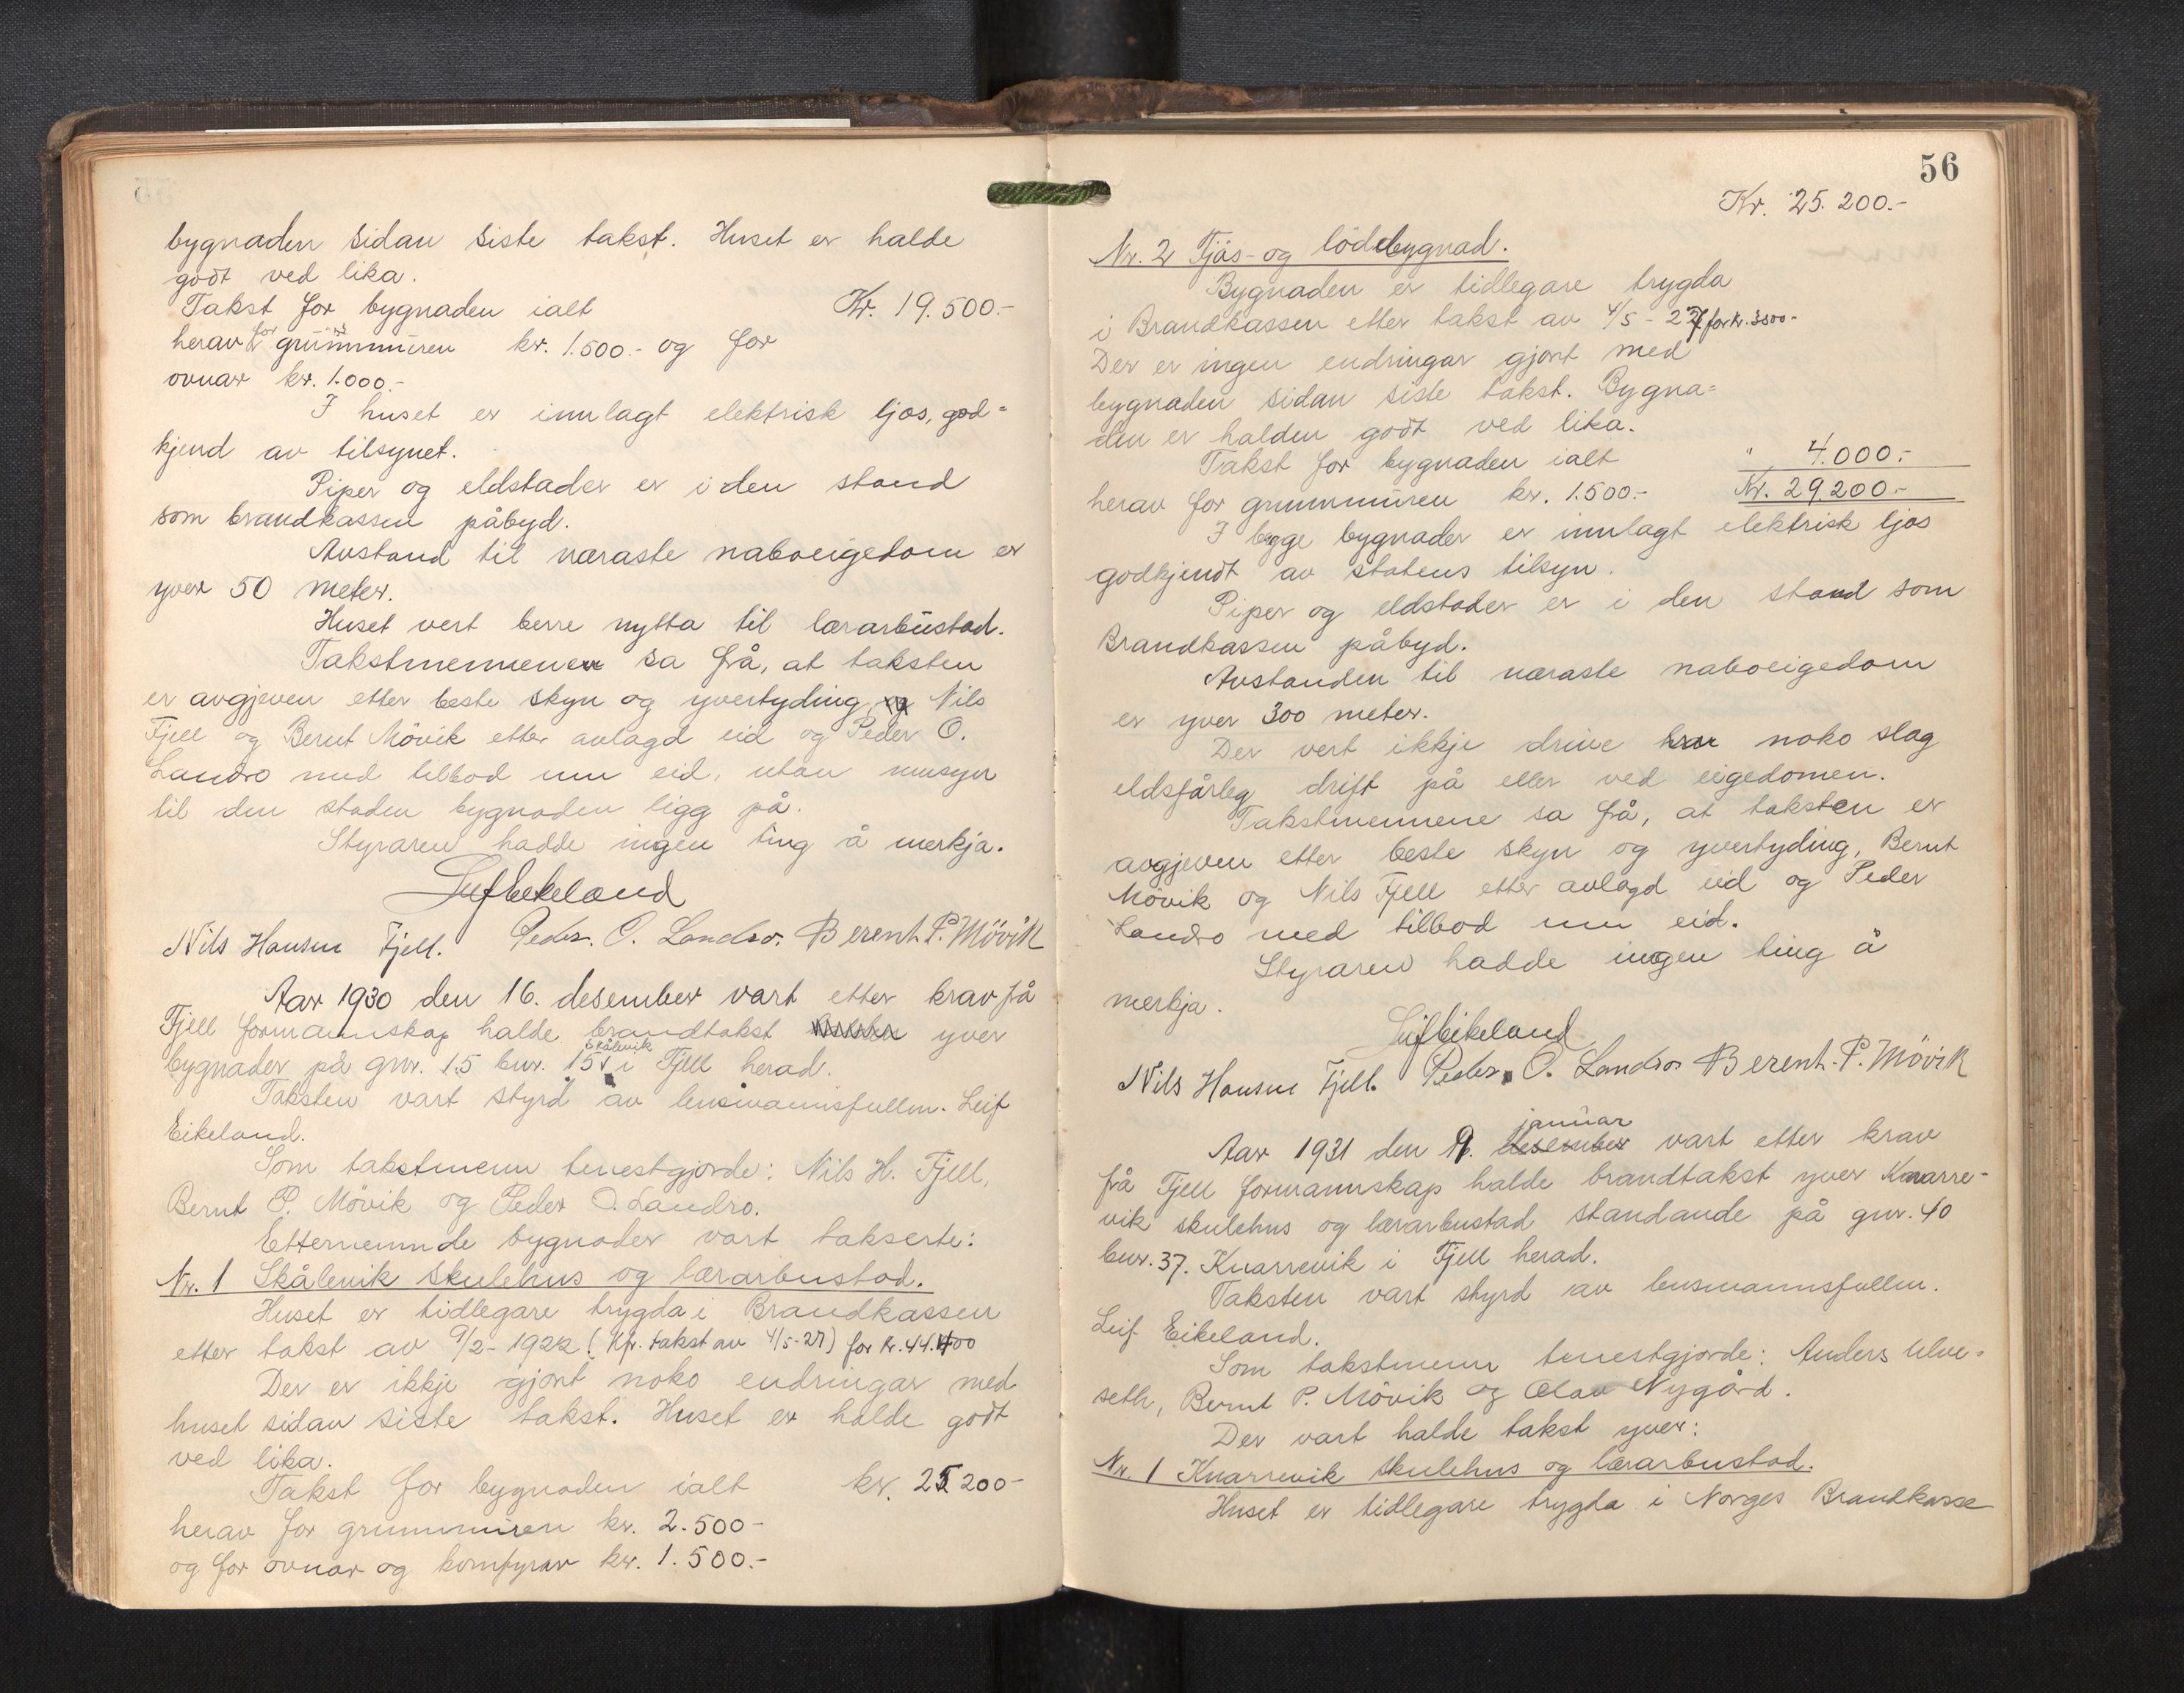 bygnaden sidan siste takst. Huset er halde
godt ved lika.
Takst for bygnaden ialt Kr. 19.500.-
herav for grunnmuren kr. 1.500.- og for
ovnar kr. 1.000.-
I huset er innlagt elektrisk ljos, god=
kjend av tilsynet.
Piper og eldstader er i den stand
som brandkassen påbyd.
Avstand til næraste naboeigedom er
yver 50 meter.
Huset vert berre nytta til lærarbustad.
Takstmennene sa frå, at taksten
er avgjeven etter beste skyn og yvertyding, Nils
Fjell og Bernt Mövik etter avlagd eid og Peder O.
Landro med tilbod um eid, utan umsyn
til den staden bygnaden ligg på.
Styraren hadde ingen ting å merkja.
Leif Eikeland
Nils Hansen Fjell. Peder. O. Landro. Berent. P. Mövik
Aar 1930 den 16. desember vart etter krav frå
Fjell formannskap halde brandtakst yver
bygnader på gnr. 15 bnr. 15 Skålevik i Fjell herad.
Taksten vart styrd av lensmannsfullm. Leif
Eikeland.
Som takstmenn tenestgjorde: Nils H. Fjell,
Bernt P. Mövik og Peder O. Landro.
Etternemnde bygnader vart takserte:
Nr. 1 Skålevik skulehus og lærarbustad.
Huset er tidlegare trygda i Brandkassen
etter takst av 9/2-1922 (Kfr. takst av 4/5-27) for kr. 44.400
Der er ikkje gjort noko endringar med
huset sidan siste takst. Huset er halde godt
ved lika.
Takst for bygnaden ialt kr. 25 200-
herav for grunnmuren kr. 2.500-
og for ovnar og komfyrar kr. 1.500.-
56
Kr. 25.200.-
Nr. 2 Fjös- og lödebygnad.
Bygnaden er tidlegare trygda
i Brandkassen etter takst av 4/5-27 for kr. 3800-
Der er ingen endringar gjort med
bygnaden sidan siste takst. Bygna=
den er halden godt ved lika.
Takst for bygnaden ialt " 4.000.-
herav for grunnmuren kr. 1.500.- Kr. 29.200.-
I begge bygnader er innlagt elektrisk ljos
godkjendt av statens tilsyn.
Piper og eldstader er i den stand som
Brandkassen påbyd.
Avstanden til næraste naboeigedom
er yver 300 meter.
Der vert ikkje drive noko slag
eldsfårleg drift på eller ved eigedomen.
Takstmennene sa frå, at taksten er
avgjeven etter beste skyn og yvertyding, Bernt
Mövik og Nils Fjell etter avlagd eid og Peder
Landro med tilbod um eid.
Styraren hadde ingen ting å
merkja.
Leif Eikeland
Nils Hansen Fjell. Peder O. Landro Berent. P. Mövik
Aar 1931 den 9. desember januar vart etter krav
frå Fjell formannskap halde brandtakst yver Knarre-
vik skulehus og lærarbustad standande på gnr. 40
bnr. 37. Knarrevik i Fjell herad.
Taksten vart styrd av lensmannsfullm.
Leif Eikeland.
Som takstmenn tenestgjorde: Anders Ulve=
seth, Bernt P. Mövik og Olav Nygård.
Der vart halde takst yver:
Nr. 1 Knarrevik skulehus og lærarbustad.
Huset er tidlegare trygda i Norges Brandkasse